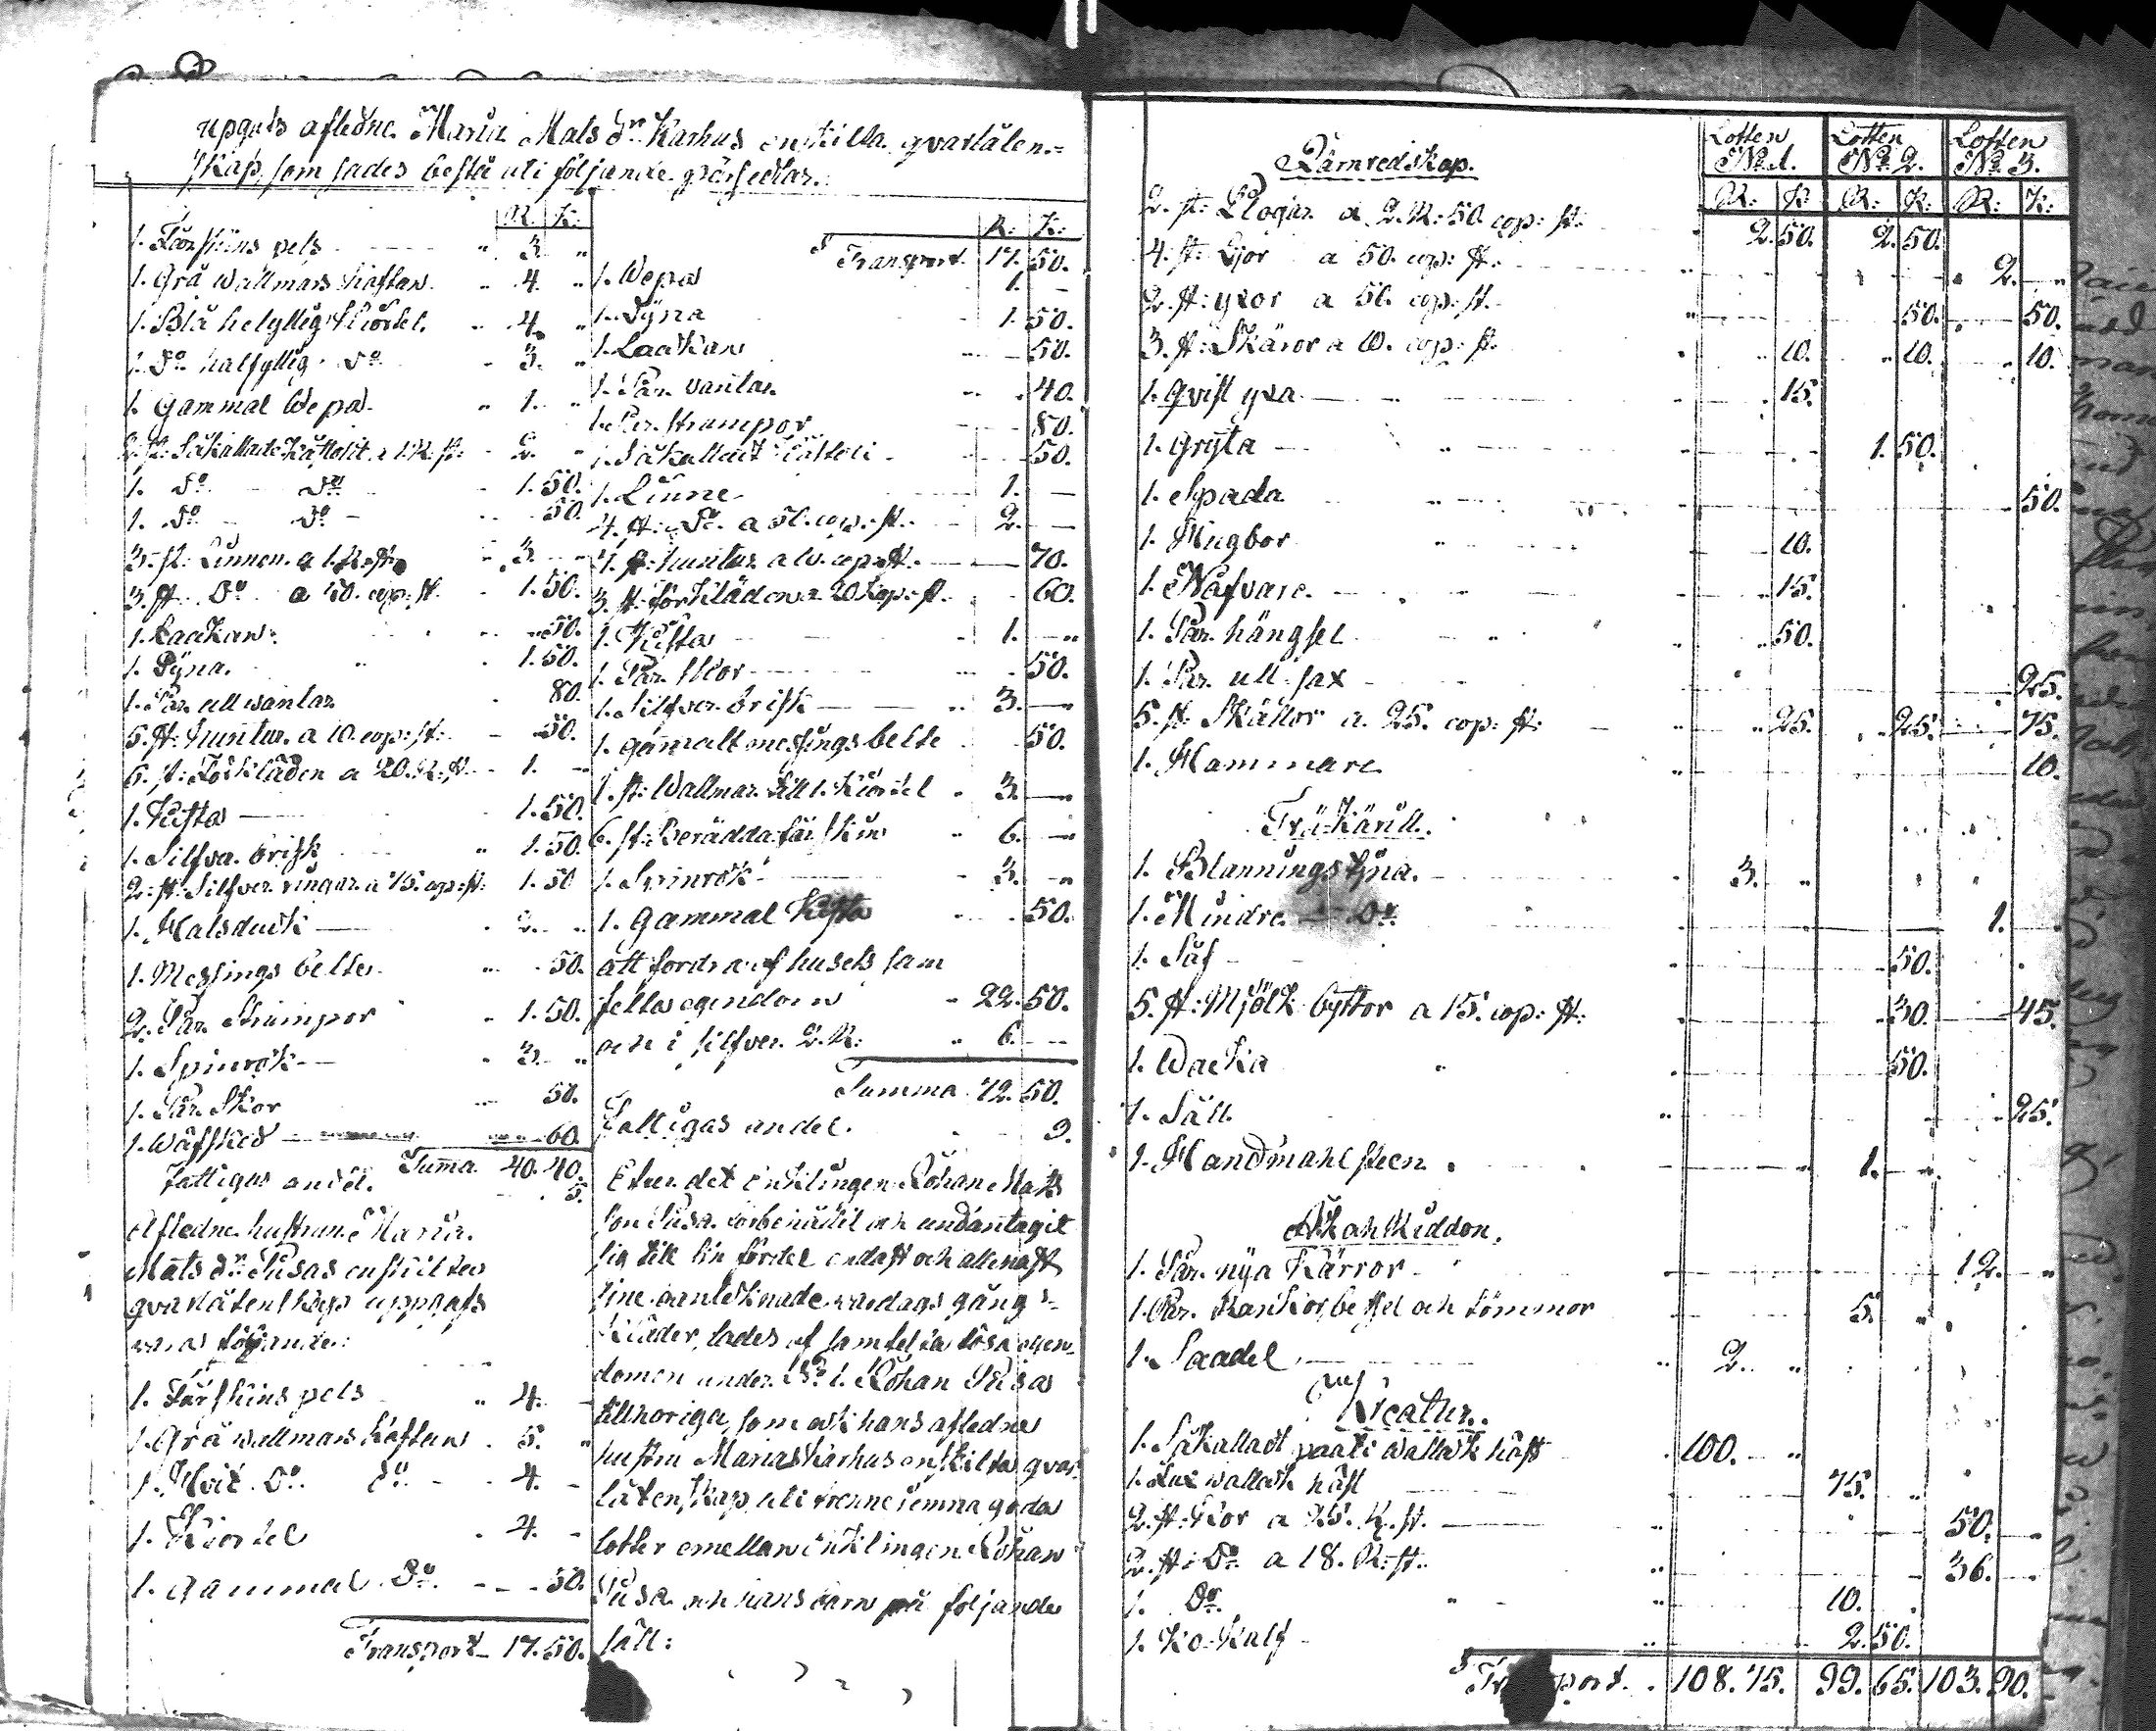 upgafs afledne Maria Mats dr Karhus enskilta qvarlåten-
skap, som sades bestå uti följande persedlar.
R. K:
1. Fårskins pels " 3. "
1. Grå Wallmars kaftan " 4. "
1. Blå helyllig kiortel. " 4. "
1. Do halfyllig Do - 3. "
1. Gammal Wepa " 1. "
2. st: Såkallade a 1 R: st: - 2. "
1. Do Do 1. 50.
1. Do Do 50.
3. st: Linnen a 1. R: st: 3. "
3. st. Do a 50. cop: st. 1. 50.
1. Laakan 50.
1. Dÿna. 1. 50.
1. Par ull wantar 80.
5. st: huntur a 10. cop: st: 50.
6. st: Förkläden a 20. K: st. 1. -
1. Kista 1. 50.
1. Silfver brisk 1. 50.
2: st: Silfver ringar a 75. cop: st: 1. 50
1. Halsduk 2. "
1. Messings belte 50.
2. Par Strumpor 1. 50.
1. Spinrok 3. "
1. Par Skor 50.
1. Wäfsked 60.
Suma 40. 40.
Fattigas andel. 5.
Afledne hustrun Maria
Mats dr Pusas enskilta
qvarlåtenskap uppgafs
vara följande:
1. Fårskins pels " 4. -
1. Grå wallmars kaftan . 5. "
1. Hvit Do Do - 4. -
1. Kiortel . 4. -
1. Gammal Do - 50.
Transport 17. 50.
R: K:
Transport 17. 50.
1. Wepa 1. -
1. Dÿna 1. 50.
1. Laakan 50.
1. Par vantar 40.
1. Par strumpor 80.
1. Såkallad 50.
1. Linne 1. -
4. st: Do a 50. cop: st. 2. -
7. st: huntur a 10. cop: st. 70.
3. st: förkläden a 20 kop: st. 60.
1. Kista 1. "
1. Par skor 50.
1. Silfver brisk 3. -
1. gammalt messings belte 50.
1. st: Wallmar till 1. Kiortel 3. -
6. st: Berädda fårskin " 6. -
1. Spinrok 3. -
1. Gammal Kista 50.
att fordra af husets sam
felta egendom - 22. 50.
och i silfver 2. R: " 6. -
Summa 72. 50.
Fattigas andel. 9.
Efter det enklingen Johan Mats
son Pusa förbehållit och undantagit
sig till sin fördel endast och allenast
sine vardags gång-
kläder, lades af samfelta lösa egen-
domen under No 1. Johan Pusa
tillhöriga, som ock hans afledne
hustru Maria Karhus enskilta qvar
låtenskap uti trenne jemna goda
lotter emellan enklingen Johan
Pusa och hans barn på följande
sätt:
Lotten No 1. Lotten No 2. Lotten No 3.
R: K R: K: R: K:
Järnredskap.
2. st: Plogar a 2. R: 50. cop: st: 2. 50. 2. 50.
4. st: Ljor a 50. cop: st. 2. "
2. st: yxor a 50. cop: st. 50. 50.
3. st: Skäror a 10. cop: st. 10. 10. 10.
1. qvist yxa 15.
1. Grÿta 1. 50.
1. Spada 50.
1. Hugbor 10.
1. Nafvare 15.
1. Par hängsel 50.
1. Par ull sax 25.
5. st: Skällor a 25. cop: st. 25. 25. 75.
1. Hammare 10.
Trä Käríll.
1. Blannings tyna. 3. "
1. Mindre Do 1. -
1. Såf 50.
5. st: Mjölk byttor a 15. cop: st: 30. 45.
1. Wacka 50.
1. Såll 25.
1. Handmahlsteen 1. -
Åkah Kiddon.
1. Par nya Kärror 12. "
1. Par. Rankor, betzel och tömmor 5. "
1. Saadel 2. "
Kreatur.
1. Såkallad wallack häst 100. "
1. wallack häst 75. "
2. st: Kor a 25. R. st. 50. -
2. st: Do a 18. R: st. 36. -
1. Do 10. "
1. Ko-Kalf 2. 50.
Transport. 108. 75. 99. 65. 103. 90.